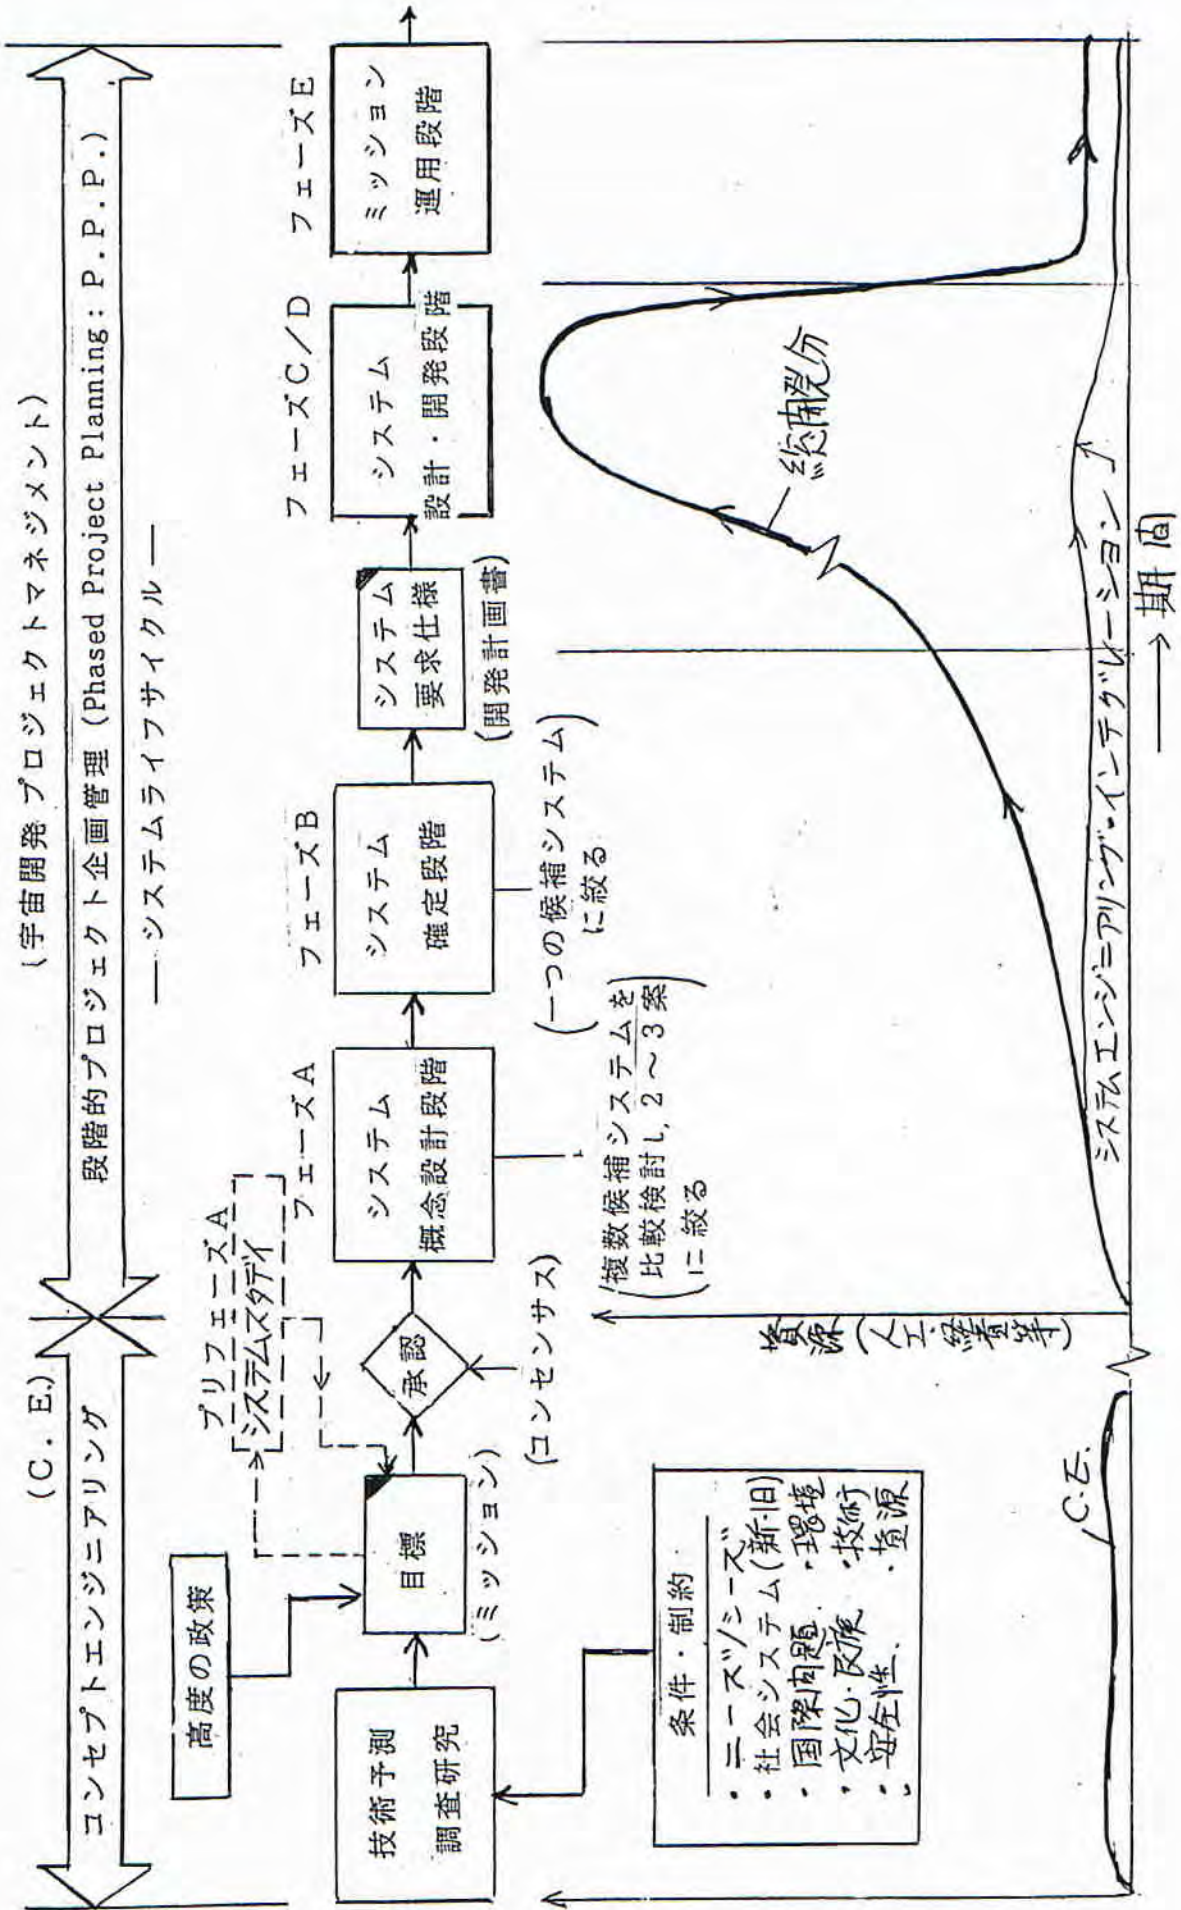 (宇宙開発プロジェクトマネジメント)
(C. E.)
コンセプトエンジニアリング
段階的プロジェクト企画管理 (Phased Project Planning: P.P.P.)
— システムライフサイクル —
高度の政策
プリフェーズA
システムスタデイ
技術予測
調査研究
目標
(ミッション)
承認
(コンセンサス)
フェーズA
システム
概念設計段階
(複数候補システムを
比較検討し, 2~3案
に絞る)
フェーズB
システム
確定段階
(一つの候補システム
に絞る)
システム
要求仕様
(開発計画書)
フェーズC/D
システム
設計・開発段階
フェーズE
ミッション
運用段階
条件・制約
・ニーズ/シーズ
・社会システム(新・旧)
・国際問題 ・環境
・文化・民族 ・技術
・安全性 ・資源
C.E.
資源(人工・経費等)
総開発分
システムエンジニアリング・インテグレーション
→ 期間